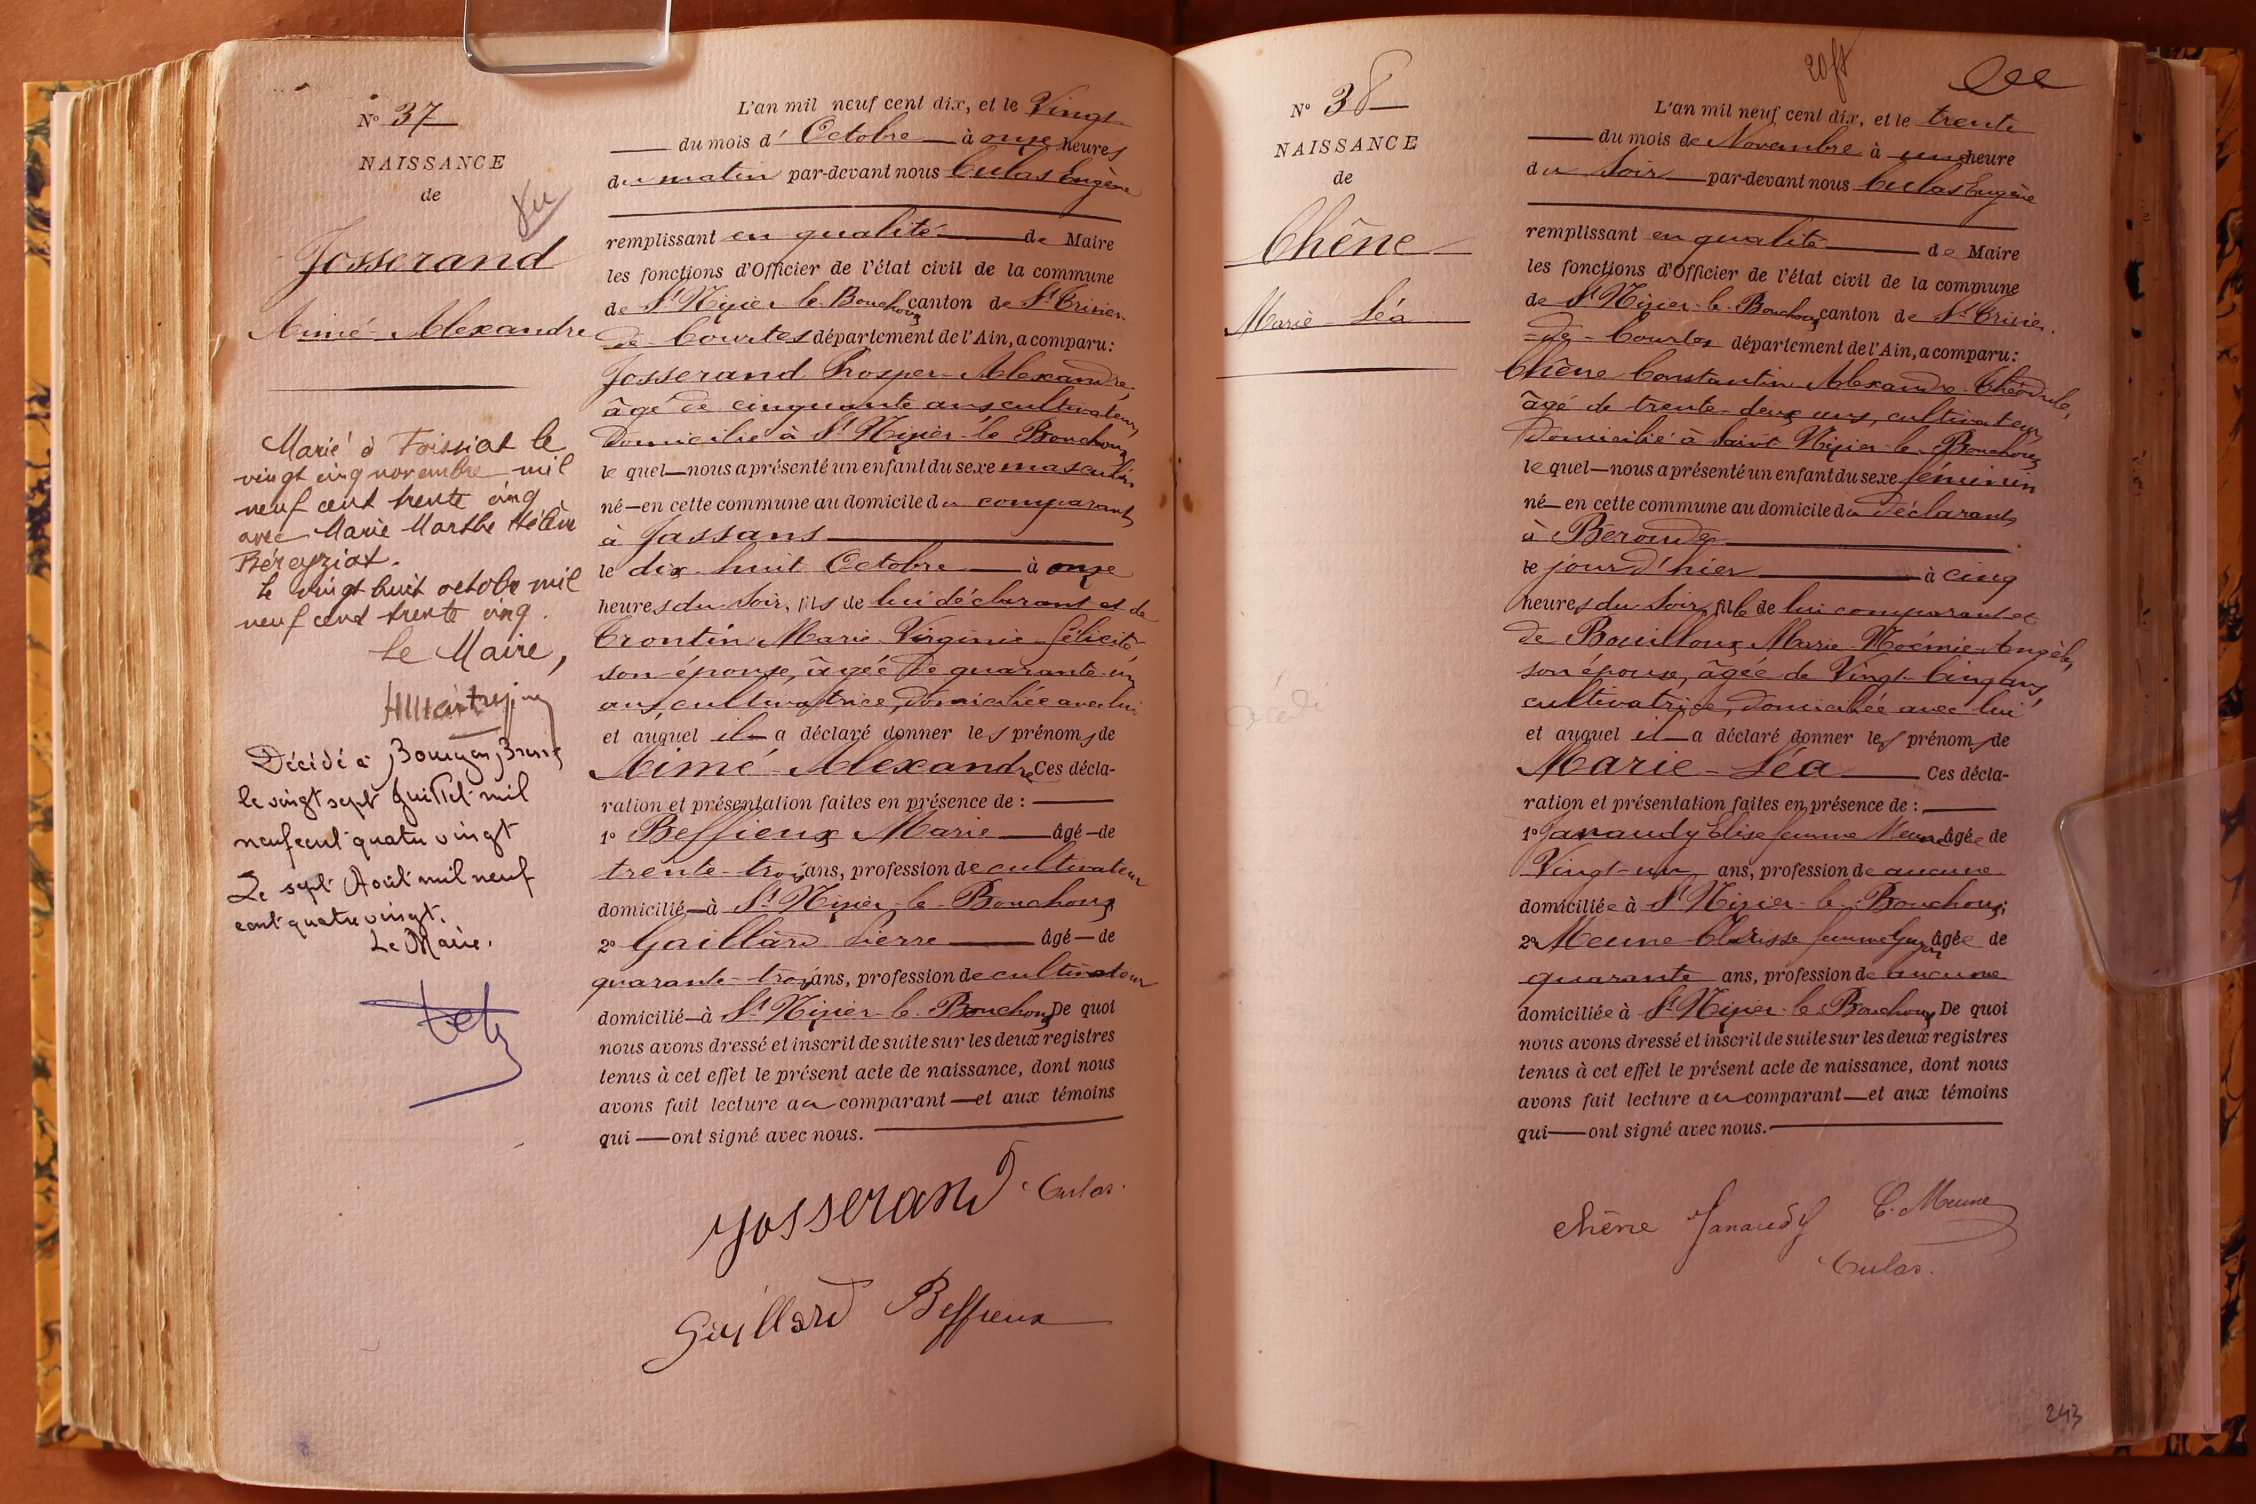 N° 37
NAISSANCE
de
Vu
Josserand
Aimé Alexandre
Marié à Foissiat le
vingt cinq novembre mil
neuf cent trente cinq
avec Marie Marthe Hélène
Béreyziat.
Le vingt huit octobre mil
neuf cent trente cinq.
Le Maire,
Décédé à Bourg en Bresse
le vingt sept Juillet mil
neuf cent quatre vingt
Le sept Août mil neuf
cent quatre vingt.
Le Maire.
L'an mil neuf cent dix, et le Vingt
du mois d' Octobre à onze heures
du matin par-devant nous Culas Eugène
remplissant en qualité de Maire
les fonctions d'Officier de l'état civil de la commune
de St Nizier le Bouchoux canton de St Trivier
de Courtes département de l'Ain, a comparu:
Josserand Prosper Alexandre,
âgé de cinquante ans cultivateur,
domicilié à St Nizier le Bouchoux
le quel nous a présenté un enfant du sexe masculin
né en cette commune au domicile du comparant
à Jassans
le dix huit Octobre à onze
heures du soir, fils de lui déclarant et de
Crontin Marie Virginie Félicité,
son épouse, âgée de quarante un
ans, cultivatrice, domiciliée avec lui
et auquel il a déclaré donner les prénoms de
Aimé Alexandre Ces décla-
ration et présentation faites en présence de :
1° Beffieux Marie âgé de
trente-trois ans, profession de cultivateur
domicilié à St Nizier le Bouchoux
2° Gaillard Pierre âgé de
quarante-trois ans, profession de cultivateur
domicilié à St Nizier le Bouchoux De quoi
nous avons dressé et inscrit de suite sur les deux registres
tenus à cet effet le présent acte de naissance, dont nous
avons fait lecture au comparant et aux témoins
qui ont signé avec nous.
Josserand Culas.
Gaillard Beffieux
N° 38
NAISSANCE
de
Chêne
Marie Léa
L'an mil neuf cent dix, et le trente
du mois de Novembre à une heure
du Soir par-devant nous Culas Eugène
remplissant en qualité de Maire
les fonctions d'Officier de l'état civil de la commune
de St Nizier le Bouchoux canton de St Trivier
de Courtes département de l'Ain, a comparu:
Chêne Constantin Alexandre Théodule,
âgé de trente-deux ans, cultivateur,
domicilié à Saint Nizier le Bouchoux
le quel nous a présenté un enfant du sexe féminin
né en cette commune au domicile du déclarant
à Beroude
le jour d'hier à cinq
heures du Soir, fille de lui comparant et
de Bouilloux Marie Noémie Angèle,
son épouse, âgée de Vingt Cinq ans,
cultivatrice, domiciliée avec lui
et auquel il a déclaré donner les prénoms de
Marie-Léa Ces décla-
ration et présentation faites en présence de :
1° Janaudy Elise femme Meune âgée de
Vingt-un ans, profession de aucune
domiciliée à St Nizier le Bouchoux;
2° Meune Clarisse femme âgée de
quarante ans, profession de aucune
domiciliée à St Nizier le Bouchoux De quoi
nous avons dressé et inscrit de suite sur les deux registres
tenus à cet effet le présent acte de naissance, dont nous
avons fait lecture au comparant et aux témoins
qui ont signé avec nous.
Chêne Janaudy C. Meune
Culas.
243